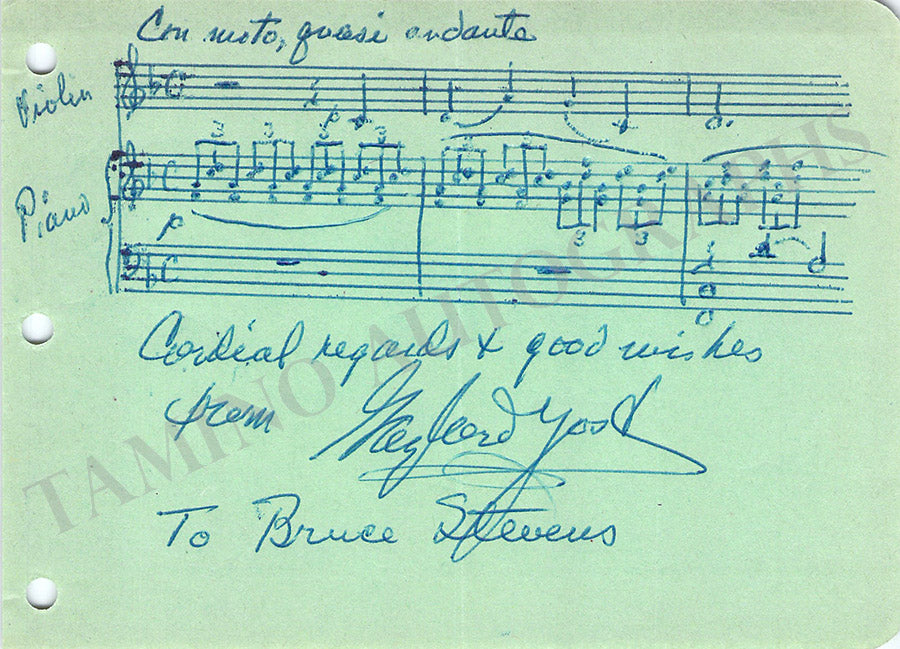 Con moto, quasi andante
Violin
p
3 3 3 3
3 3
Piano
p
3 3
Cordial regards & good wishes
from Gaylord Yost
To Bruce Stevens
TAMINO AUTOGRAPHS